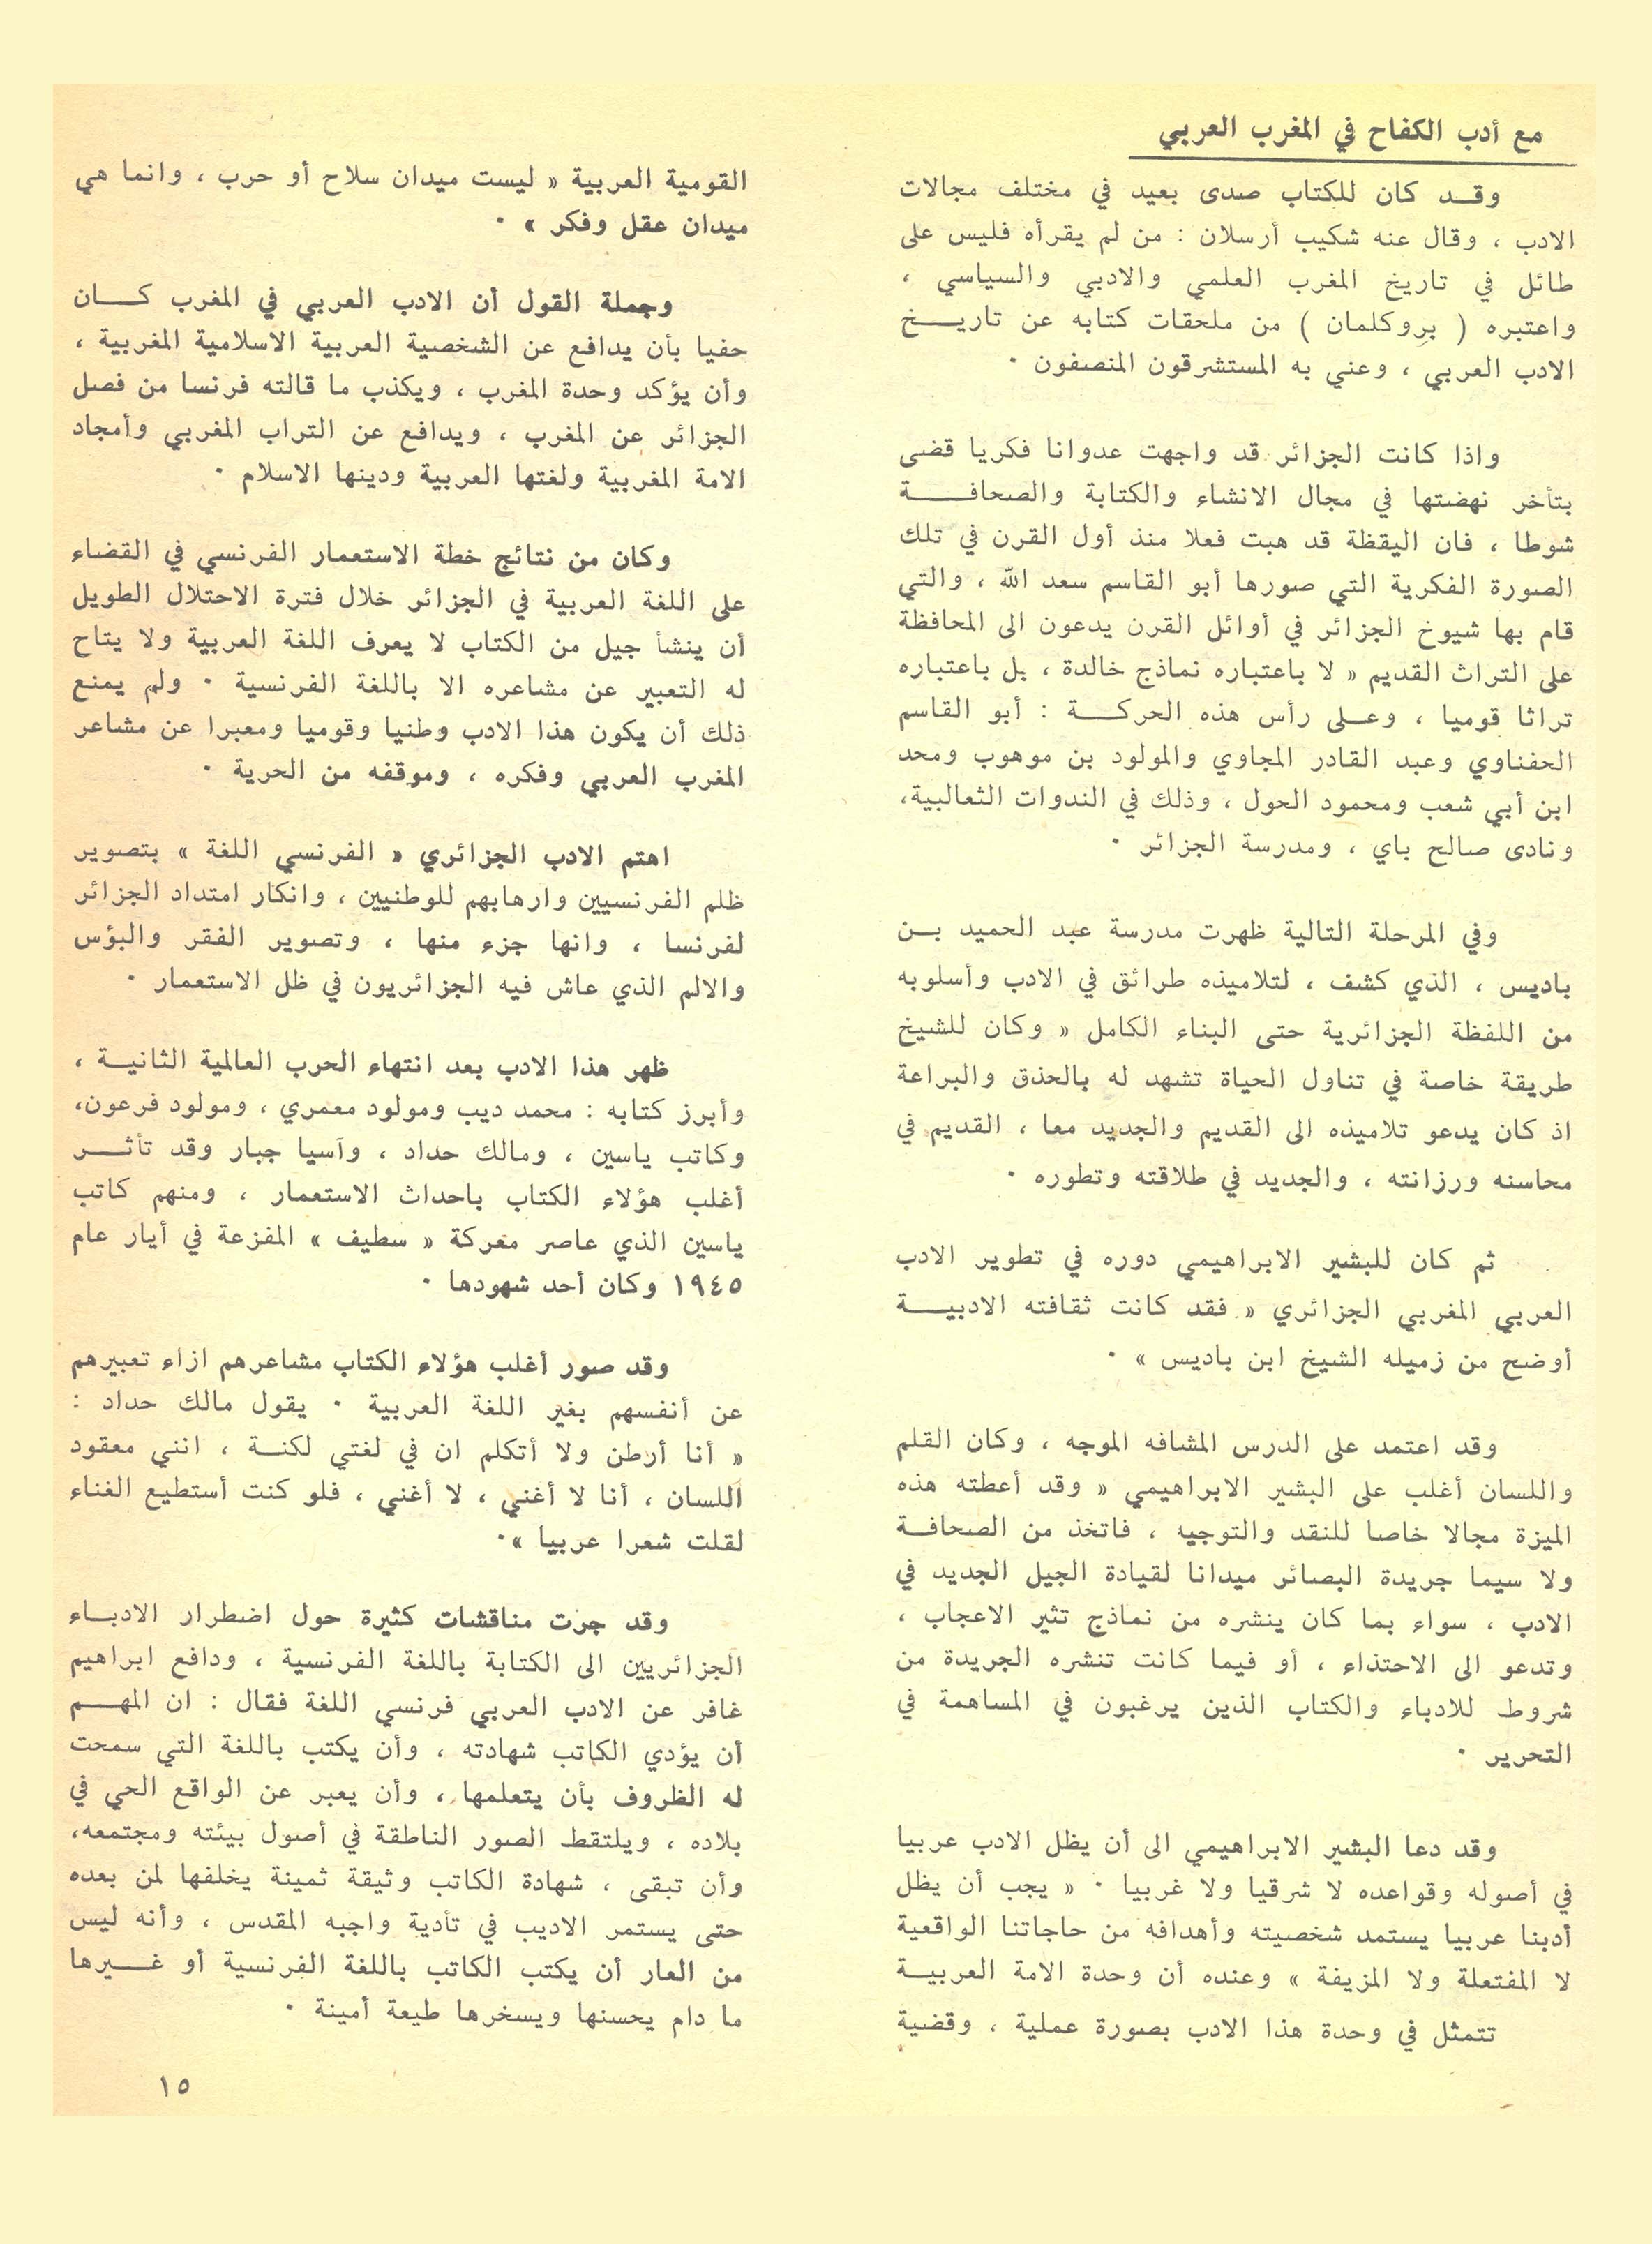 مع أدب الكفاح في المغرب العربي
وقد كان للكتاب صدى بعيد في مختلف مجالات
الادب ، وقال عنه شكيب أرسلان : من لم يقرأه فليس على
طائل في تاريخ المغرب العلمي والادبي والسياسي ،
واعتبره ( بروكلمان ) من ملحقات كتابه عن تاريخ
الادب العربي ، وعني به المستشرقون المنصفون .
واذا كانت الجزائر قد واجهت عدوانا فكريا قضى
بتأخر نهضتها في مجال الانشاء والكتابة والصحافة
شوطا ، فان اليقظة قد هبت فعلا منذ أول القرن في تلك
الصورة الفكرية التي صورها أبو القاسم سعد الله ، والتي
قام بها شيوخ الجزائر في أوائل القرن يدعون الى المحافظة
على التراث القديم « لا باعتباره نماذج خالدة ، بل باعتباره
تراثا قوميا ، وعلى رأس هذه الحركة : أبو القاسم
الحفناوي وعبد القادر المجاوي والمولود بن موهوب ومحد
ابن أبي شعب ومحمود الحول ، وذلك في الندوات الثعالبية،
ونادى صالح باي ، ومدرسة الجزائر .
وفي المرحلة التالية ظهرت مدرسة عبد الحميد بن
باديس ، الذي كشف ، لتلاميذه طرائق في الادب وأسلوبه
من اللفظة الجزائرية حتى البناء الكامل « وكان للشيخ
طريقة خاصة في تناول الحياة تشهد له بالحذق والبراعة
اذ كان يدعو تلاميذه الى القديم والجديد معا ، القديم في
محاسنه ورزانته ، والجديد في طلاقته وتطوره .
ثم كان للبشير الابراهيمي دوره في تطوير الادب
العربي المغربي الجزائري « فقد كانت ثقافته الادبية
أوضح من زميله الشيخ ابن باديس » .
وقد اعتمد على الدرس المشافه الموجه ، وكان القلم
واللسان أغلب على البشير الابراهيمي « وقد أعطته هذه
الميزة مجالا خاصا للنقد والتوجيه ، فاتخذ من الصحافة
ولا سيما جريدة البصائر ميدانا لقيادة الجيل الجديد في
الادب ، سواء بما كان ينشره من نماذج تثير الاعجاب ،
وتدعو الى الاحتذاء ، أو فيما كانت تنشره الجريدة من
شروط للادباء والكتاب الذين يرغبون في المساهمة في
التحرير .
وقد دعا البشير الابراهيمي الى أن يظل الادب عربيا
في أصوله وقواعده لا شرقيا ولا غربيا . « يجب أن يظل
أدبنا عربيا يستمد شخصيته وأهدافه من حاجاتنا الواقعية
لا المفتعلة ولا المزيفة » وعنده أن وحدة الامة العربية
تتمثل في وحدة هذا الادب بصورة عملية ، وقضية
القومية العربية « ليست ميدان سلاح أو حرب ، وانما هي
ميدان عقل وفكر » .
وجملة القول أن الادب العربي في المغرب كان
حفيا بأن يدافع عن الشخصية العربية الاسلامية المغربية ،
وأن يؤكد وحدة المغرب ، ويكذب ما قالته فرنسا من فصل
الجزائر عن المغرب ، ويدافع عن التراب المغربي وأمجاد
الامة المغربية ولغتها العربية ودينها الاسلام .
وكان من نتائج خطة الاستعمار الفرنسي في القضاء
على اللغة العربية في الجزائر خلال فترة الاحتلال الطويل
أن ينشأ جيل من الكتاب لا يعرف اللغة العربية ولا يتاح
له التعبير عن مشاعره الا باللغة الفرنسية . ولم يمنع
ذلك أن يكون هذا الادب وطنيا وقوميا ومعبرا عن مشاعر
المغرب العربي وفكره ، وموقفه من الحرية .
اهتم الادب الجزائري « الفرنسي اللغة » بتصوير
ظلم الفرنسيين وارهابهم للوطنيين ، وانكار امتداد الجزائر
لفرنسا ، وانها جزء منها ، وتصوير الفقر والبؤس
والالم الذي عاش فيه الجزائريون في ظل الاستعمار .
ظهر هذا الادب بعد انتهاء الحرب العالمية الثانية ،
وأبرز كتابه : محمد ديب ومولود معمري ، ومولود فرعون،
وكاتب ياسين ، ومالك حداد ، وآسيا جبار وقد تأثر
أغلب هؤلاء الكتاب باحداث الاستعمار ، ومنهم كاتب
ياسين الذي عاصر معركة « سطيف » المفزعة في أيار عام
١٩٤٥ وكان أحد شهودها .
وقد صور أغلب هؤلاء الكتاب مشاعرهم ازاء تعبيرهم
عن أنفسهم بغير اللغة العربية . يقول مالك حداد :
« أنا أرطن ولا أتكلم ان في لغتي لكنة ، انني معقود
اللسان ، أنا لا أغني ، لا أغني ، فلو كنت أستطيع الغناء
لقلت شعرا عربيا ».
وقد جرت مناقشات كثيرة حول اضطرار الادباء
الجزائريين الى الكتابة باللغة الفرنسية ، ودافع ابراهيم
غافر عن الادب العربي فرنسي اللغة فقال : ان المهم
أن يؤدي الكاتب شهادته ، وأن يكتب باللغة التي سمحت
له الظروف بأن يتعلمها ، وأن يعبر عن الواقع الحي في
بلاده ، ويلتقط الصور الناطقة في أصول بيئته ومجتمعه،
وأن تبقى ، شهادة الكاتب وثيقة ثمينة يخلفها لمن بعده
حتى يستمر الاديب في تأدية واجبه المقدس ، وأنه ليس
من العار أن يكتب الكاتب باللغة الفرنسية أو غيرها
ما دام يحسنها ويسخرها طيعة أمينة .
١٥